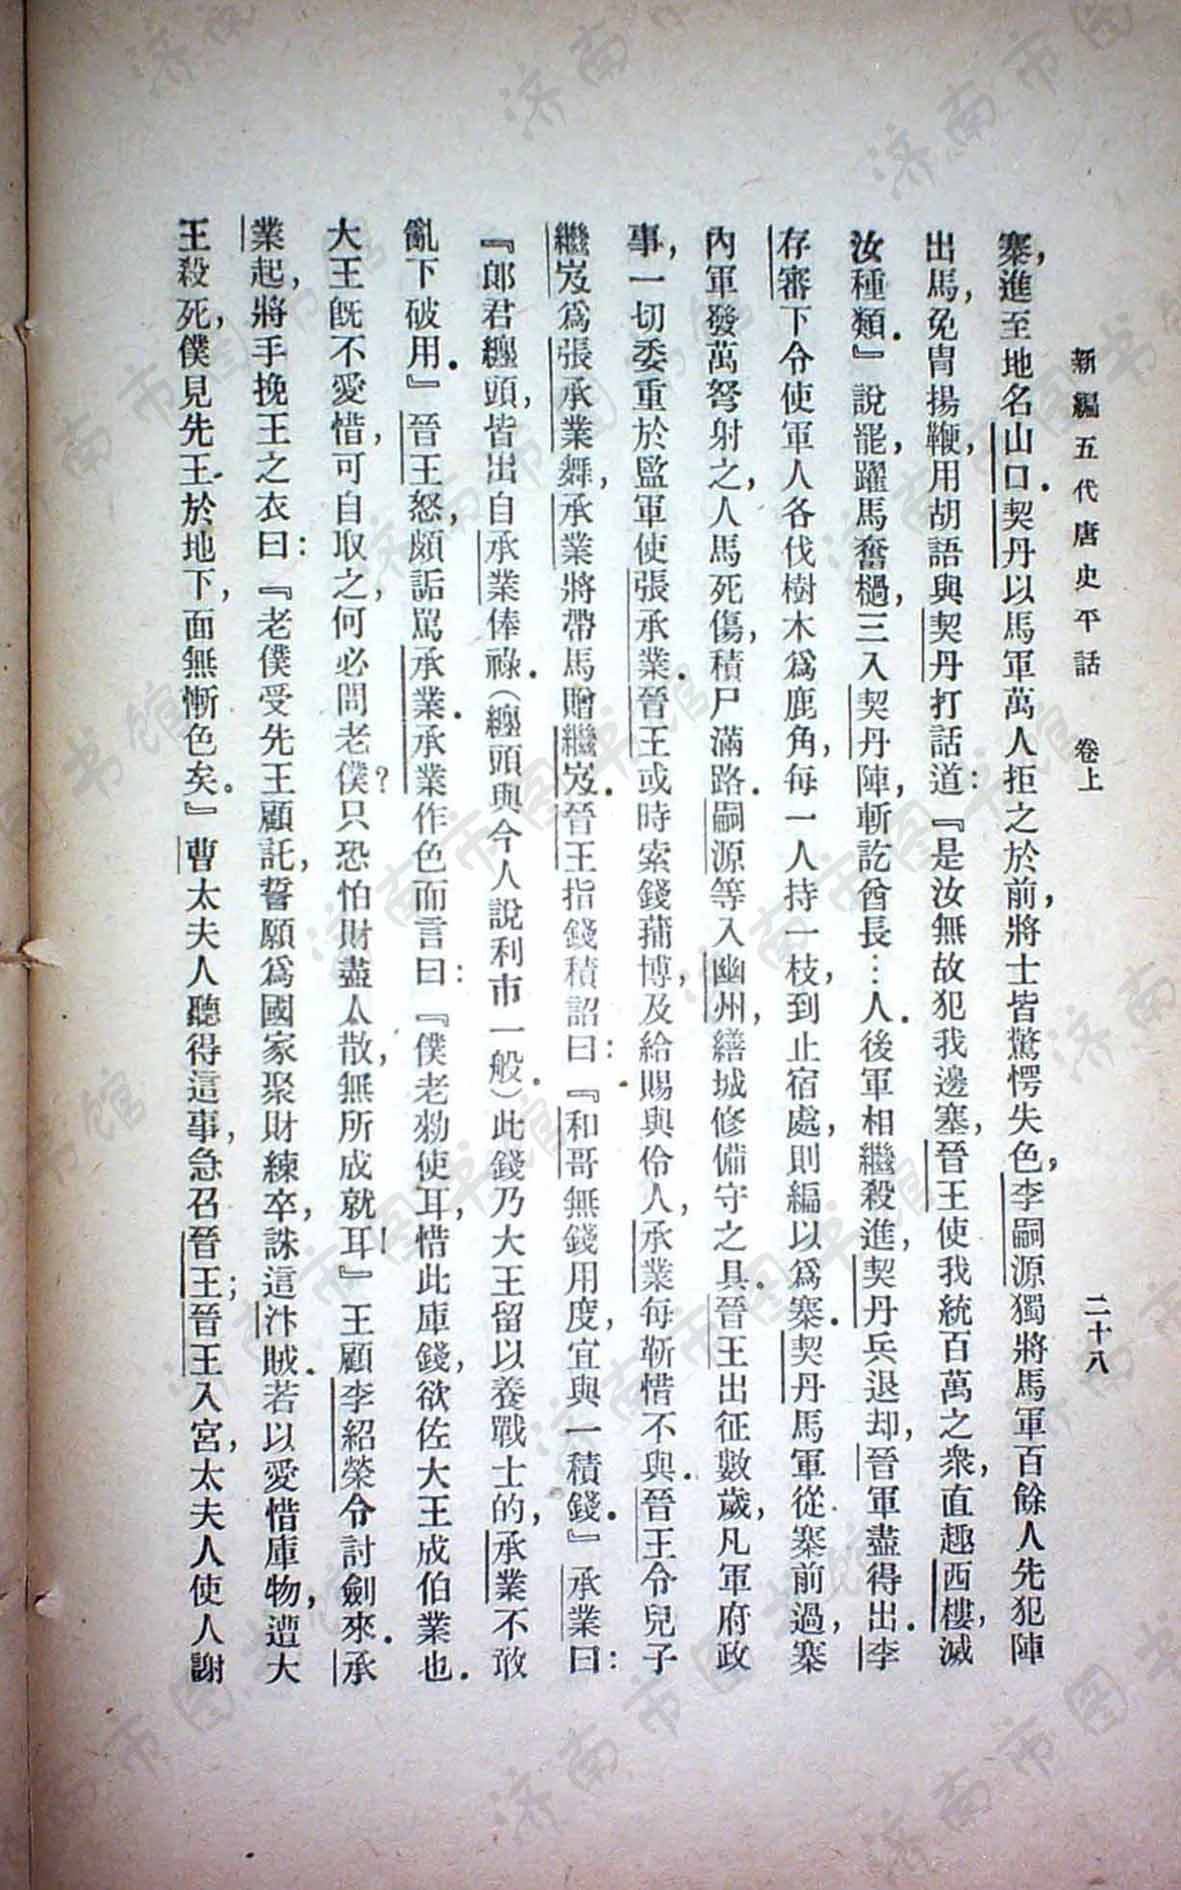 新編五代唐史平話　卷上　二十八
寨，進至地名山口。契丹以馬軍萬人拒之於前，將士皆驚愕失色，李嗣源獨將馬軍百餘人先犯陣
出馬，免冑揚鞭，用胡語與契丹打話道：『是汝無故犯我邊塞，晉王使我統百萬之衆，直趣西樓，滅
汝種類。』說罷，躍馬奮檛，三入契丹陣，斬訖酋長…人。後軍相繼殺進，契丹兵退却，晉軍盡得出。李
存審下令使軍人各伐樹木爲鹿角，每一人持一枝，到止宿處，則編以爲寨。契丹馬軍從寨前過，寨
內軍發萬弩射之，人馬死傷，積尸滿路。嗣源等入幽州，繕城修備守之具。晉王出征數歲，凡軍府政
事，一切委重於監軍使張承業。晉王或時索錢蒱博，及給賜與伶人，承業每靳惜不與。晉王令兒子
繼岌爲張承業舞，承業將帶馬贈繼岌。晉王指錢積詔曰：『和哥無錢用度，宜與一積錢。』承業曰：
『郎君纏頭，皆出自承業俸祿。（纏頭與今人說利市一般。）此錢乃大王留以養戰士的，承業不敢
亂下破用。』晉王怒，頗詬駡承業。承業作色而言曰：『僕老勑使耳，惜此庫錢，欲佐大王成伯業也。
大王旣不愛惜，可自取之，何必問老僕？只恐怕財盡人散，無所成就耳！』王顧李紹榮令討劍來。承
業起，將手挽王之衣曰：『老僕受先王顧託，誓願爲國家聚財練卒，誅這汴賊。若以愛惜庫物，遭大
王殺死，僕見先王於地下，面無慚色矣。』曹太夫人聽得這事，急召晉王；晉王入宮，太夫人使人謝
济南市图书馆